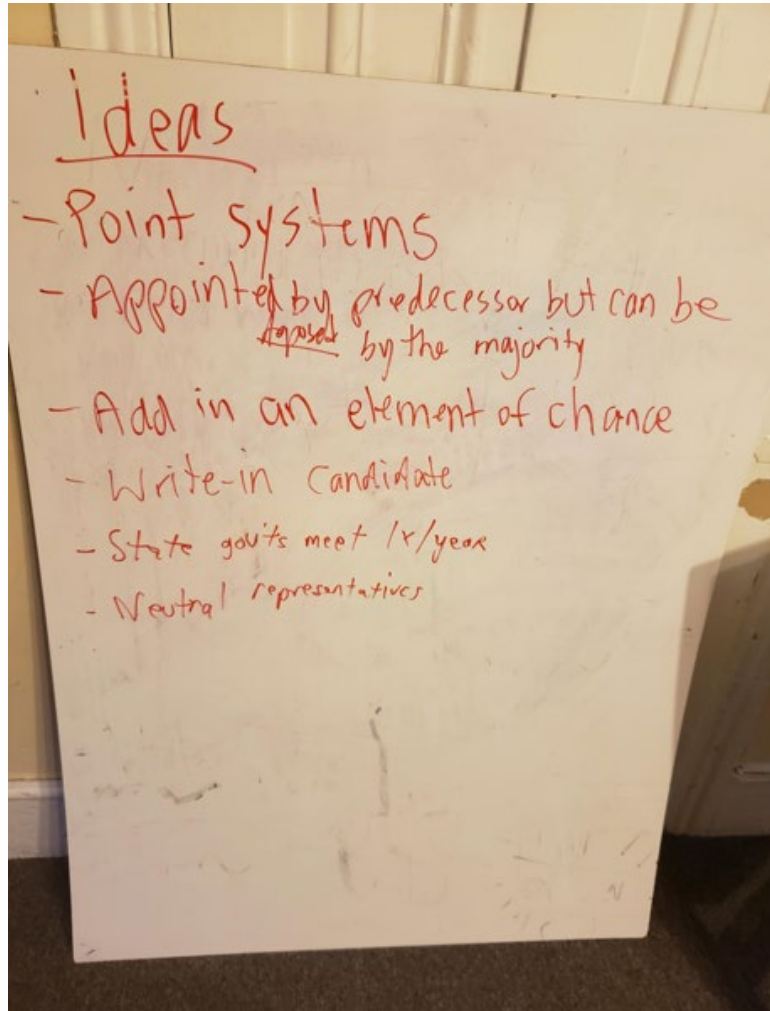 Ideas
- Point systems
- Appointed by predecessor but can be
deposed by the majority
- Add in an element of chance
- Write-in candidate
- State gov'ts meet 1x/year
- Neutral representatives